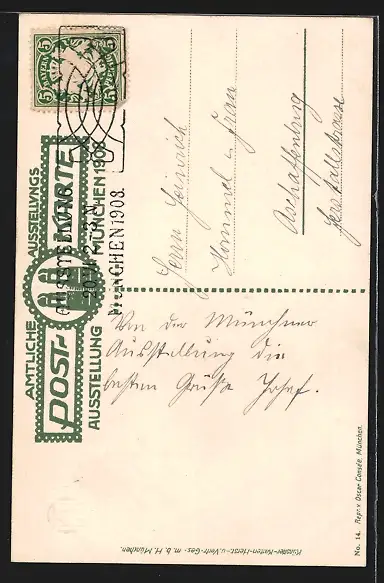 BAYERN
5 5
5 5
PFENNIG
AMTLICHE AUSSTELLUNGS
POST KARTE
AUSSTELLUNG MÜNCHEN 1908
AUSSTELLUNG
MÜNCHEN 1908.
Herrn Heinrich
Hommel u. Frau
Aschaffenburg
Von der Münchner
Ausstellung die
besten Grüße Josef.
Künstler-Karten-Herst.-u. Vertr.-Ges. m. b. H. München.
No. 14. Repr. v. Oscar Consée, München.